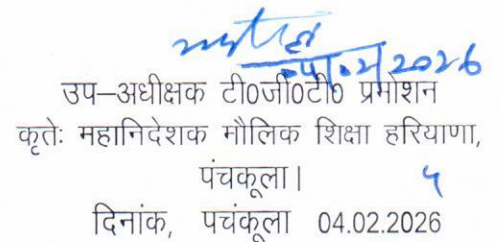 04.02.2026
उप–अधीक्षक टी0जी0टी0 प्रमोशन
कृतेः महानिदेशक मौलिक शिक्षा हरियाणा,
पंचकूला।
५
दिनांक, पचंकूला 04.02.2026